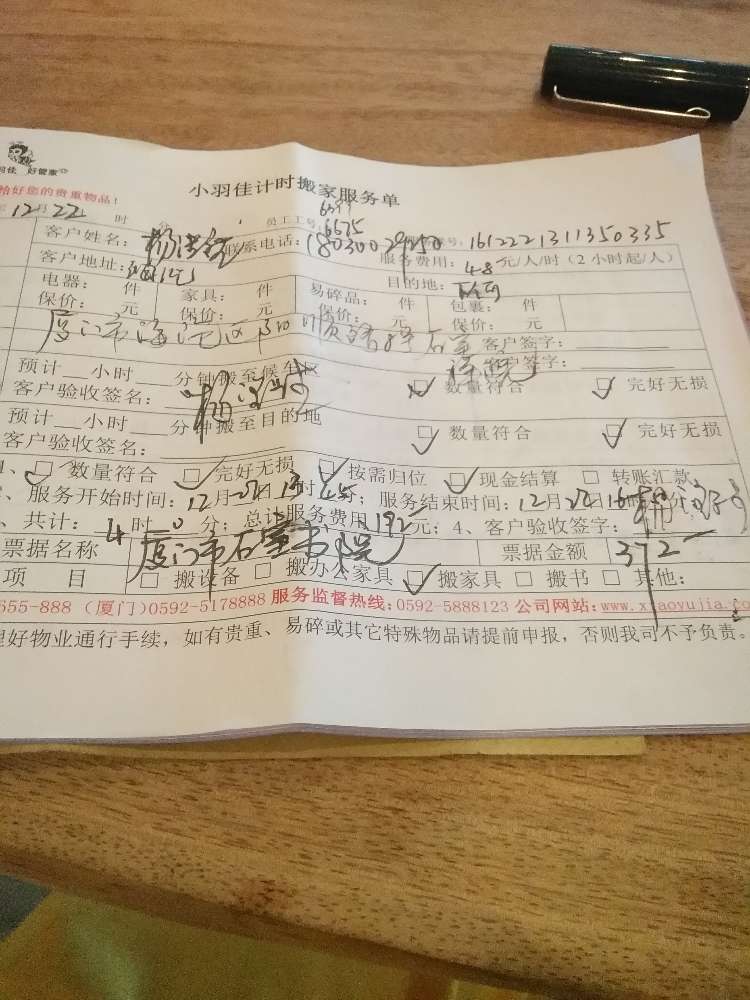 羽佳 好管家
小羽佳计时搬家服务单
恰好您的贵重物品!
6399
12月22 时 分 员工工号: 6675 号: 161222131135 0335
客户姓名: 杨 联系电话: 18030029450 服务费用: 48 元/人/时(2小时起/人)
客户地址: 海沧 目的地:
电器: 件 家具: 件 易碎品: 件 包裹: 件
保价: 元 保价: 元 保价: 元 保价: 元
厦门市海沧区 石室 客户签字:
书院 客户签字:
预计__小时__分钟搬至候车区
客户验收签名: 杨 数量符合 完好无损
预计__小时__分钟搬至目的地
客户验收签名: 数量符合 完好无损
1、 数量符合 完好无损 按需归位 现金结算 转账汇款
、服务开始时间: 12月22日13时45分; 服务结束时间: 12月22日16时 分
、共计: 4时0分; 总计服务费用192元; 4、客户验收签字:
票据名称 厦门市石室书院 票据金额 372
项 目 搬设备 搬办公家具 搬家具 搬书 其他:
655-888 (厦门)0592-5178888 服务监督热线:0592-5888123 公司网站:www.xiaoyujia.co
理好物业通行手续,如有贵重、易碎或其它特殊物品请提前申报,否则我司不予负责。